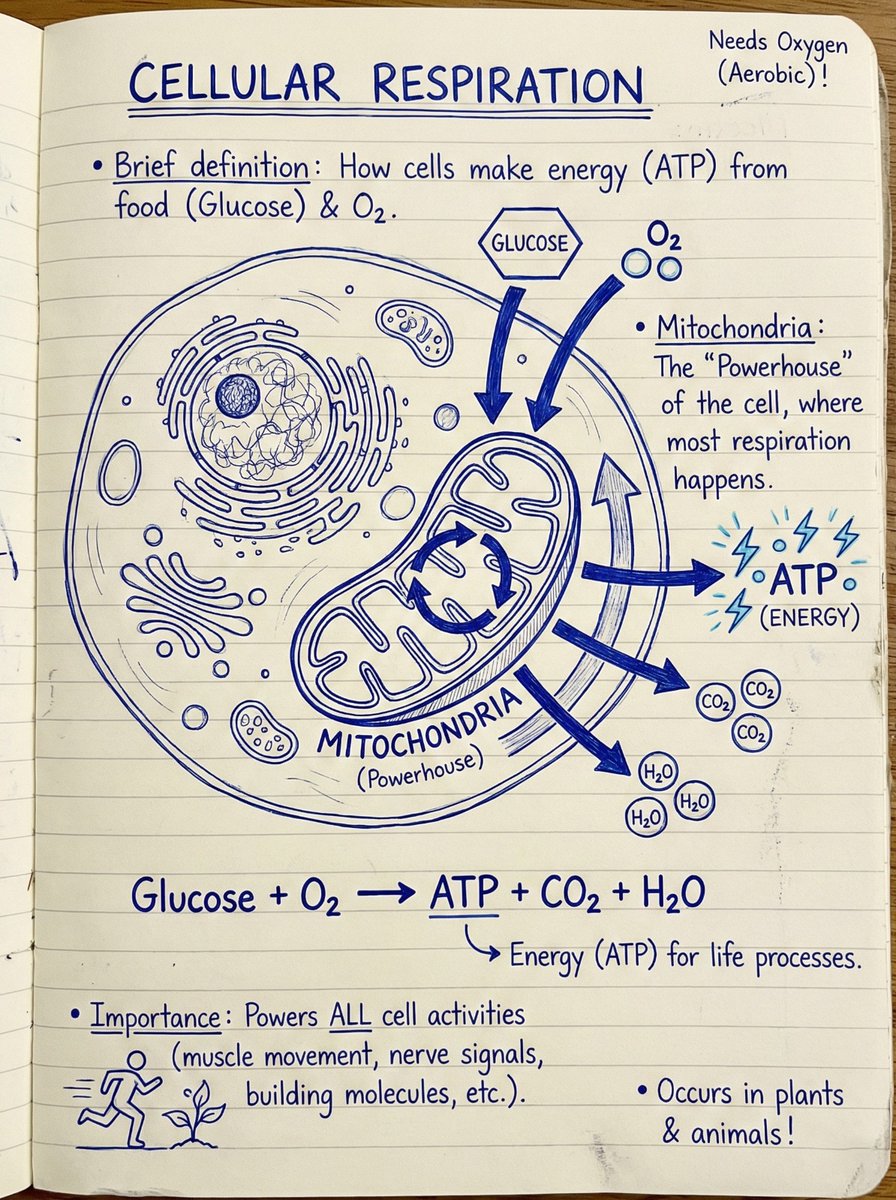 Needs Oxygen
(Aerobic)!
CELLULAR RESPIRATION
• Brief definition: How cells make energy (ATP) from
food (Glucose) & O₂.
GLUCOSE
O₂
• Mitochondria:
The “Powerhouse”
of the cell, where
most respiration
happens.
ATP
(ENERGY)
CO₂
CO₂
CO₂
MITOCHONDRIA
(Powerhouse)
H₂O
H₂O
H₂O
Glucose + O₂ → ATP + CO₂ + H₂O
Energy (ATP) for life processes.
• Importance: Powers ALL cell activities
(muscle movement, nerve signals,
building molecules, etc.).
• Occurs in plants
& animals!